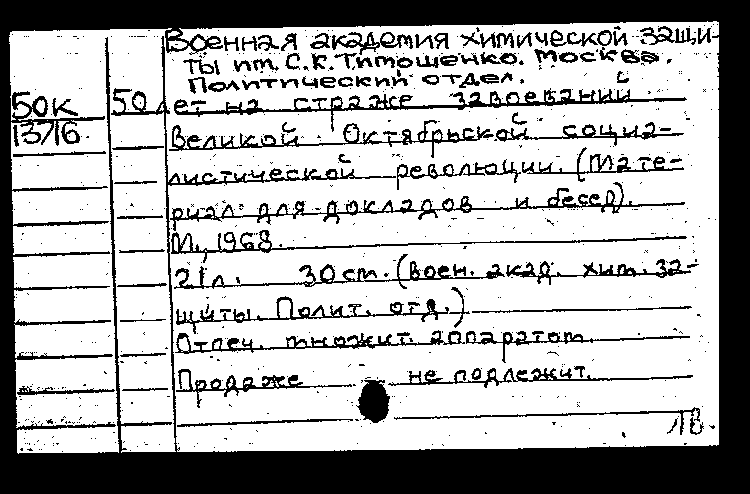 Военная академия химической защи-
ты им. С.К. Тимошенко. Москва.
Политический отдел.
50к
13716
50 лет на страже завоеваний
Великой Октябрьской социа-
листической революции. (Мате-
риал для докладов и бесед).
М., 1968.
21л. 30см. (Воен. акад. хим. за-
щиты. Полит. отд.)
Отпеч. множит. аппаратом.
Продаже не подлежит.